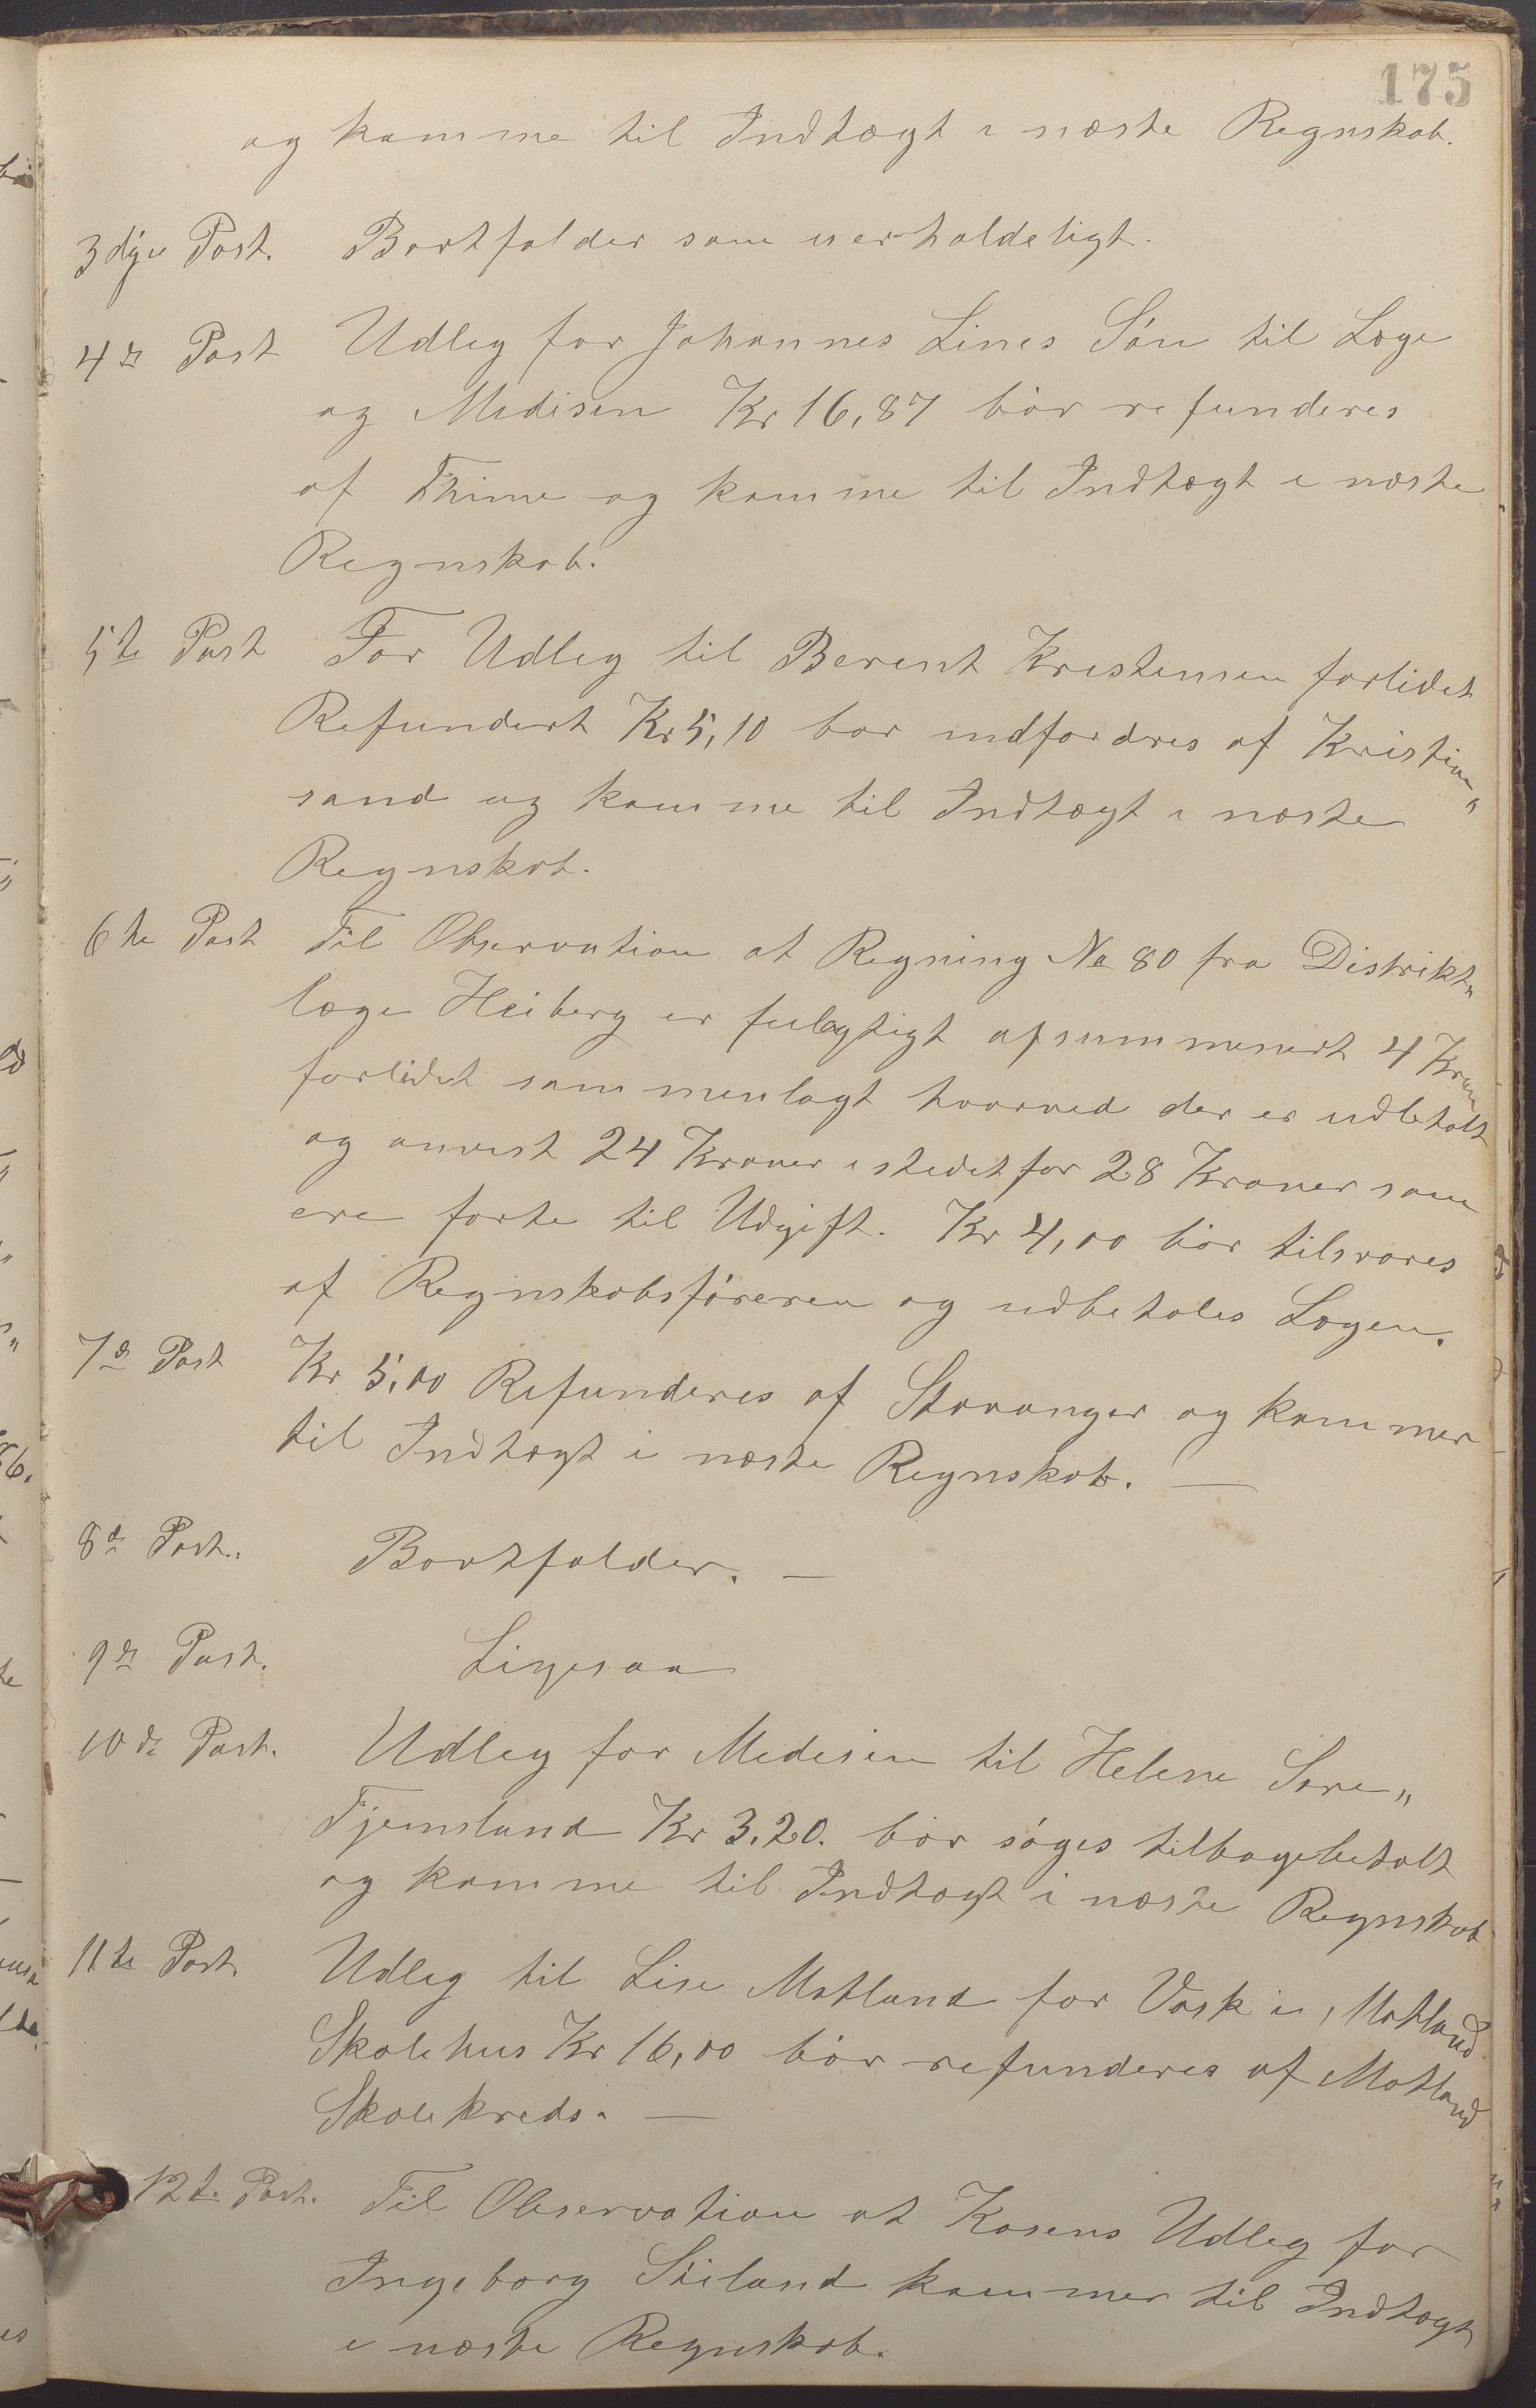 175
og komme til Indtægt i næste Regnskab.
3dje Post. Bortfalder som uerholdeligt.
4de Post Udleg for Johannes Lines Søn til Læge
og Medisin Kr 16,87 bør refunderes
af Thime og komme til Indtægt i næste
Regnskab.
5te Post For Udleg til Berent Kristensen forlidet
Refundert Kr 5,10 bør indfordres af Kristian„
sand og komme til Indtægt i næste
Regnskab.
6te Post Til Observation at Regning No 80 fra Distrikts„
læge Heiberg er feilagtigt opsummeret 4 Kroner
forlidet sammenlagt hvorved der er udbetalt
og anvist 24 Kroner istedetfor 28 Kroner som
ere førte til Udgift. Kr 4,00 bør tilsvares
af Regnskabsføreren og udbetales Lægen.
7de Post Kr 5,00 Refunderes af Stavanger og kommer
til Indtægt i næste Regnskab. —
8de Post. Bortfalder. —
9de Post. Ligesaa
10de Post. Udleg for Medisin til Helene Sore„
Tjemsland Kr 3.20. bør søges tilbagebetalt
og komme til Indtægt i næste Regnskab
11te Post. Udleg til Lise Motland for Vask i Motland
Skolehus Kr 16,00 bør refunderes af Motland
Skolekreds. —
12te Post. Til Observation at Kasens Udleg for
Ingeborg Stiland kommer til Indtægt
i næste Regnskab.